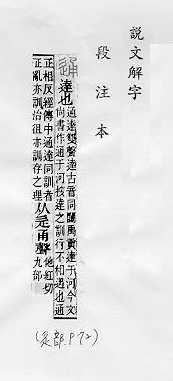 說文解字
段注本
通 達也 通達雙聲達古音同闥禹貢達于河今文
尚書作通于河按達之訓行不相遇也通
正相反經傳中通達同訓者
正亂亦訓治徂亦訓存之理
从辵甬聲 他紅切
九部
(辵部 P72)